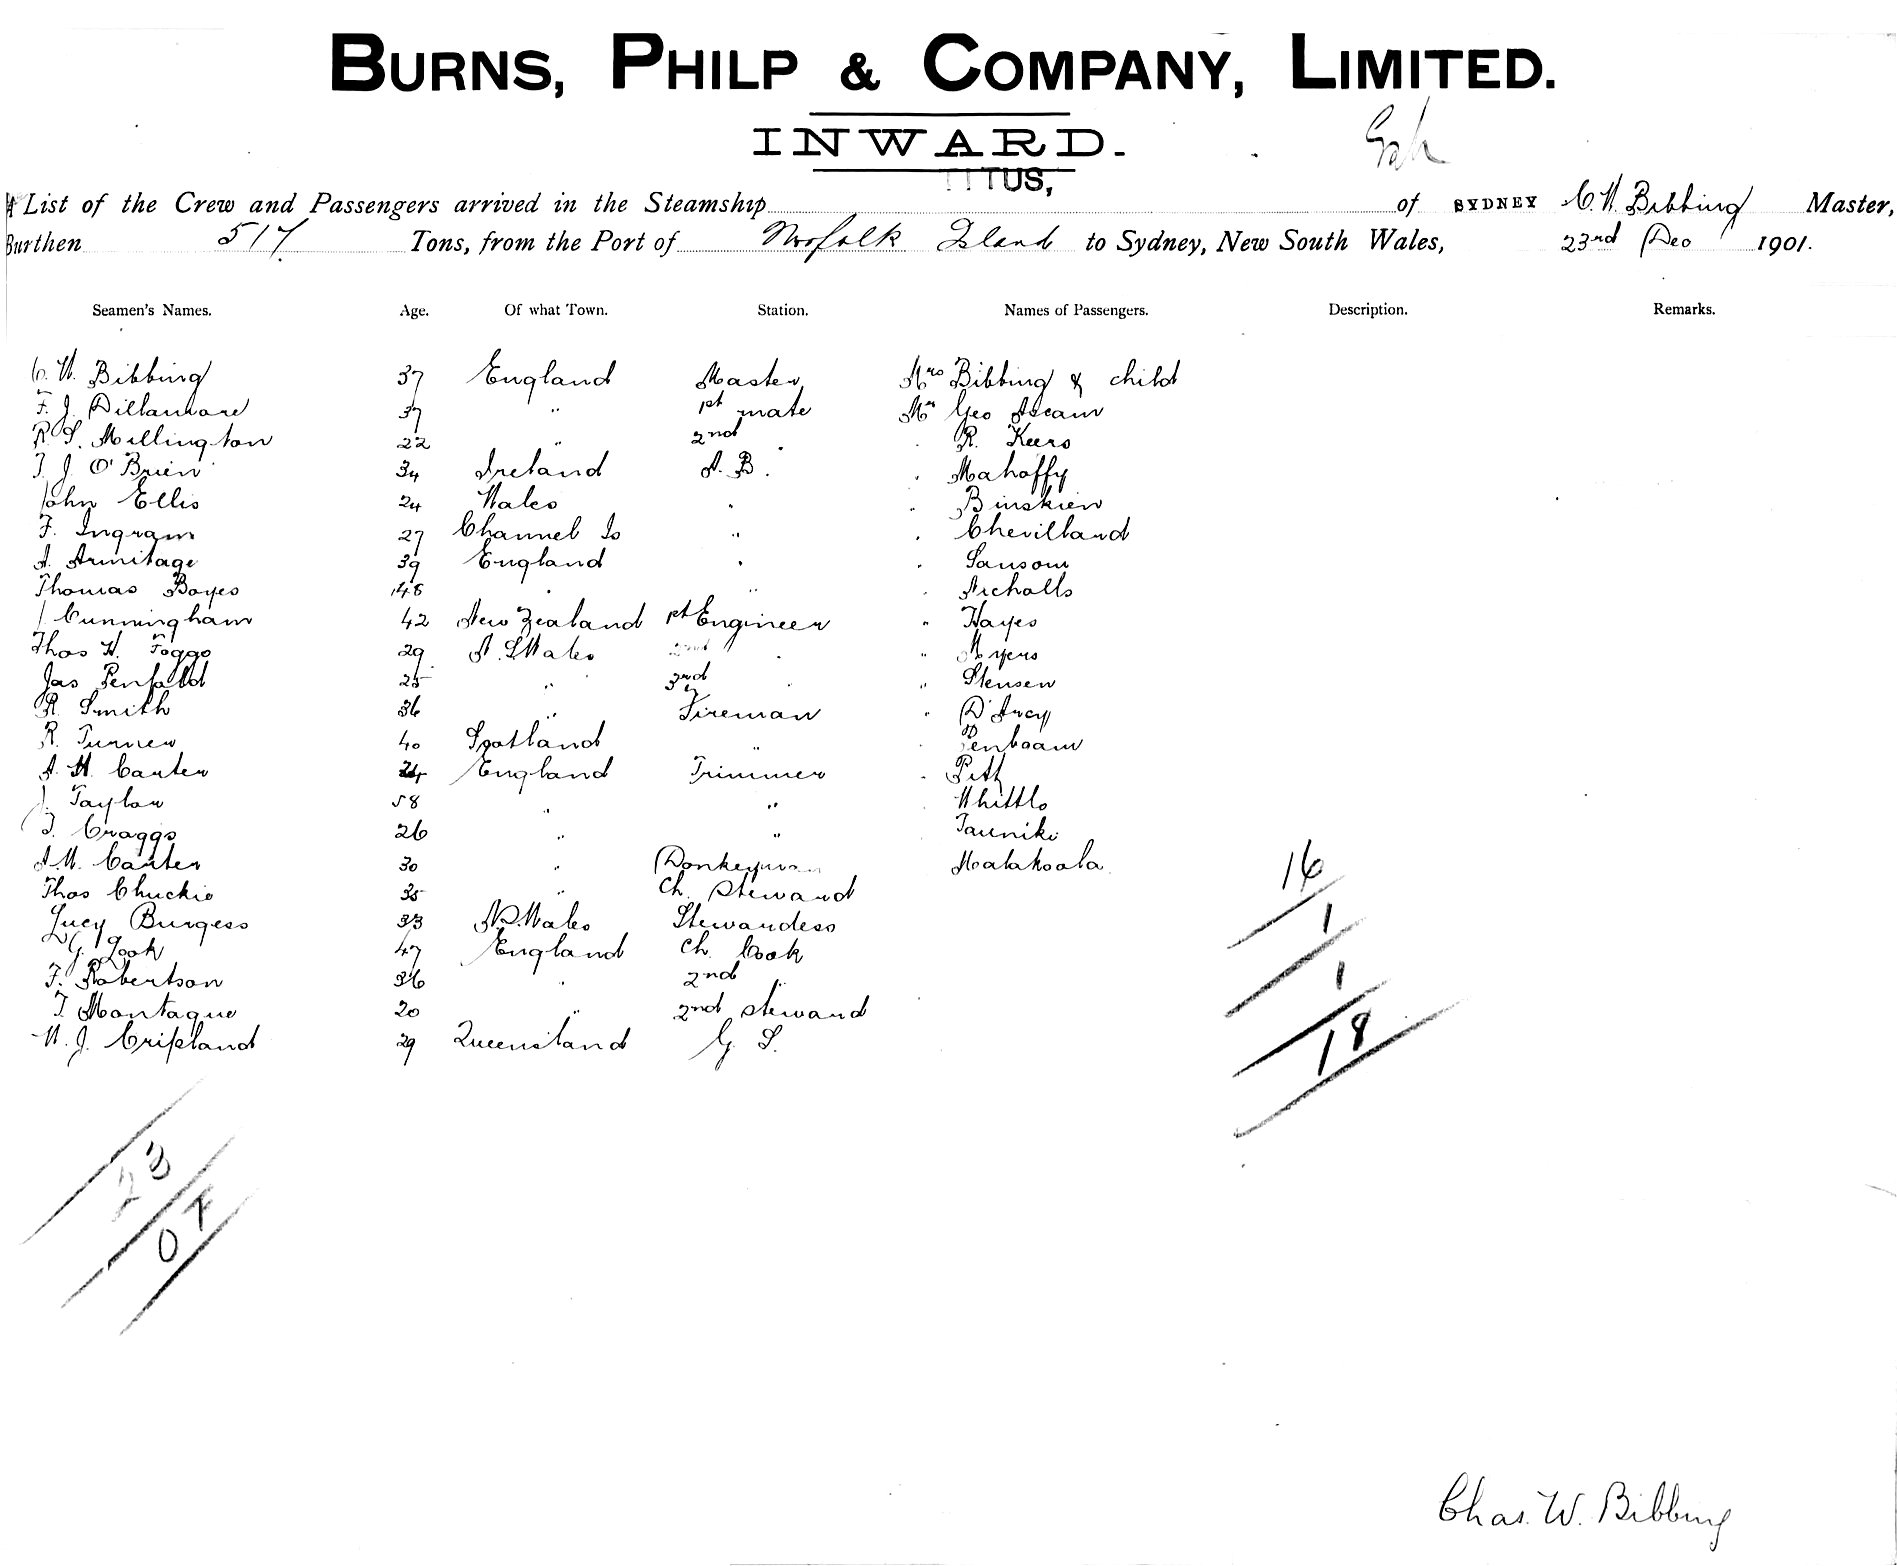 BURNS, PHILP & COMPANY, LIMITED.
INWARD.
TITUS,
List of the Crew and Passengers arrived in the Steamship of SYDNEY C. W. Bibbing Master,
Burthen 517 Tons, from the Port of Norfolk Island to Sydney, New South Wales, 23rd Dec 1901.
Seamen's Names. Age. Of what Town. Station. Names of Passengers. Description. Remarks.
C. W. Bibbing 37 England Master Mrs Bibbing & child
F. J. Dillamore 37 " 1st mate Mr Geo
R. S. Millington 22 " 2nd " R. Keers
T. J. O'Brien 34 Ireland A. B. " Mahaffy
John Ellis 24 Wales " " Binskien
F. Ingram 27 Channel Is " " Chevilland
A. Armitage 39 England " " Sansom
Thomas Boyes 48 " " " Nicholls
J Cunningham 42 New Zealand 1st Engineer " Hayes
Thos H. Foggo 29 N. S Wales 2nd " " Myers
Jas Penfold 25 " 3rd " " Stensen
R. Smith 36 " Fireman " D'Arcy
R. Turner 40 Scotland " "
A. H. Carter 24 England Trimmer " Pitt
J. Taylor 58 " " Whittle
T. Craggs 26 " "
A. W. Carter 30 " Donkeyman
Thos Chuckie 35 " Ch. Steward
Lucy Burgess 33 N.S. Wales Stewardess
G. Cook 47 England Ch. Cook
F. Robertson 36 " 2nd "
T Montague 20 " 2nd steward
W. J. Cripland 29 Queensland G. S.
16
1
1
18
23
Chas. W. Bibbing